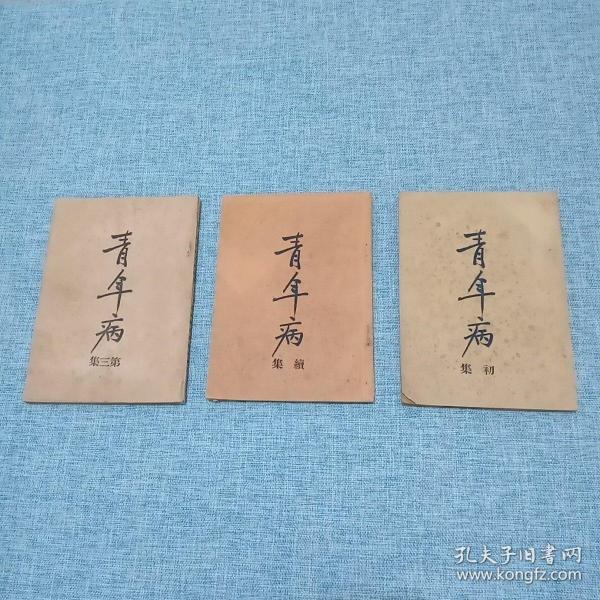 青年病
第三集
青年病
續集
青年病
初集
孔夫子旧書网
www.kongfz.com